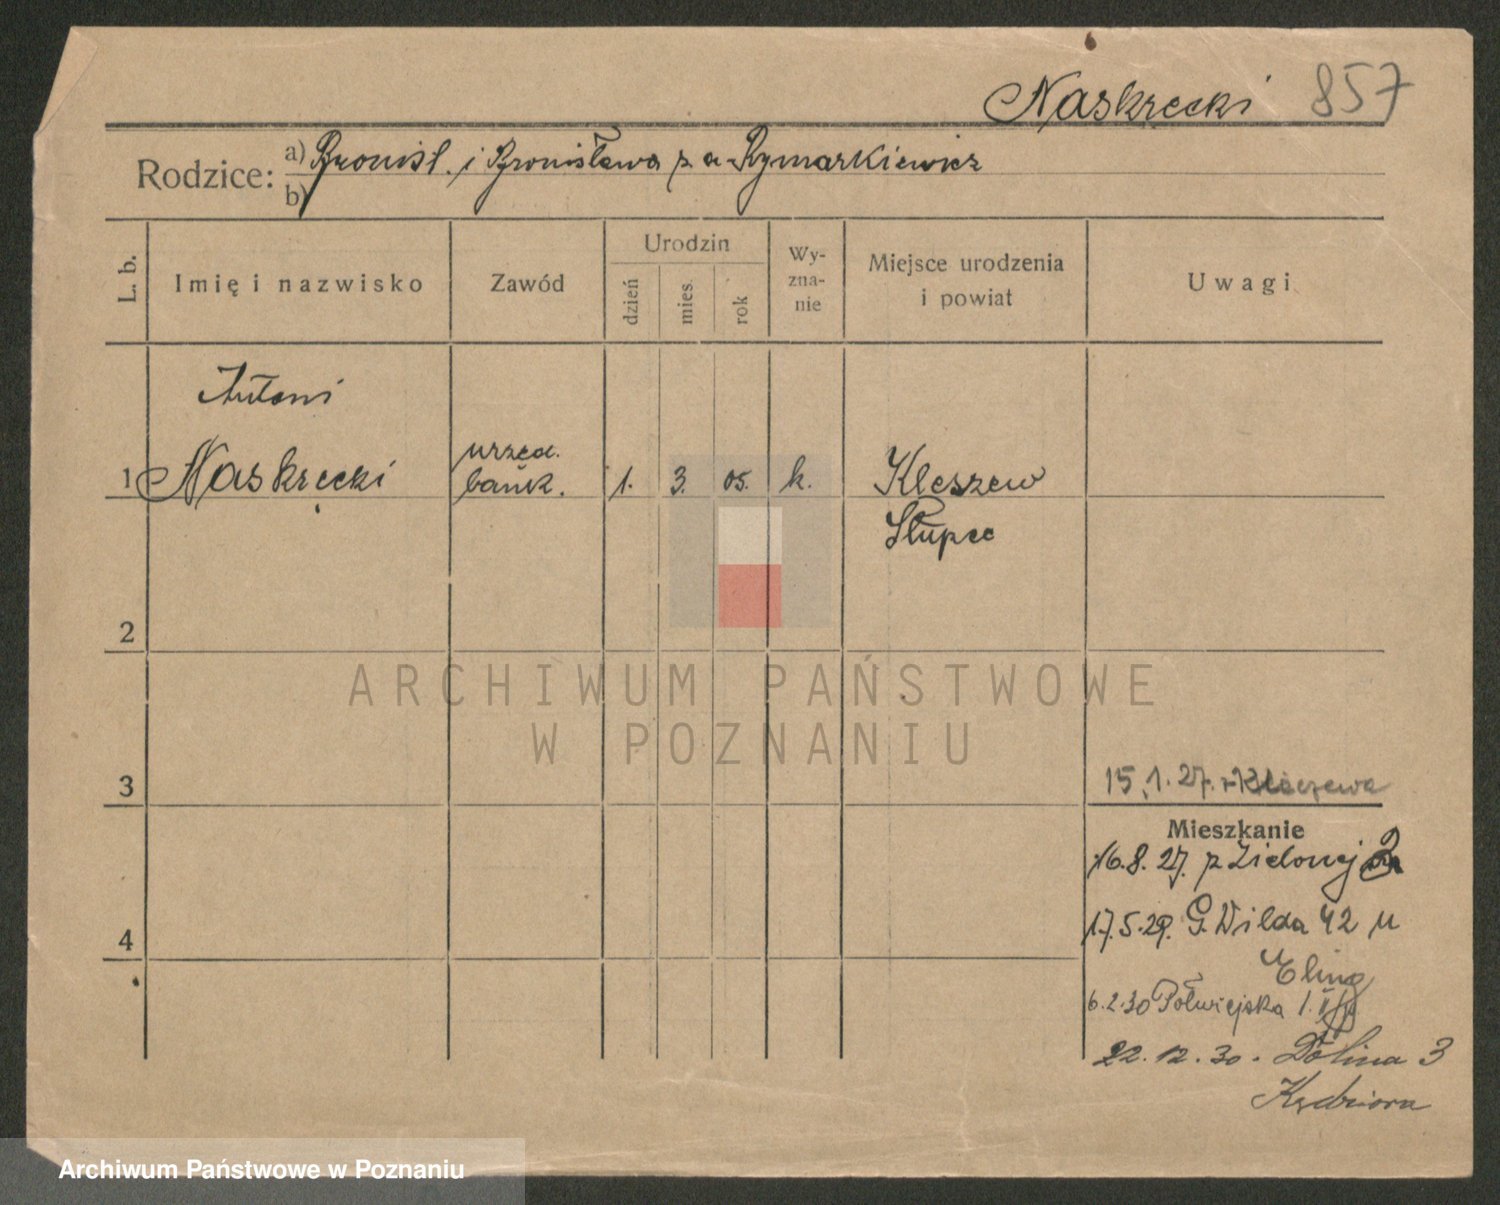 Naskręcki 857
Rodzice: a) Bronisl. i Bronisława z d. Rymarkiewicz
b)
L. b.
Imię i nazwisko
Zawód
Urodzin
dzień
mies.
rok
Wy-
zna-
nie
Miejsce urodzenia
i powiat
Uwagi
Antoni
1 Naskręcki
urzęd.
bank.
1. 3. 05. k.
Kleszew
Słupce
2
ARCHIWUM PAŃSTWOWE
W POZNANIU
3
15.1.27. z Kleczewa
Mieszkanie
16.8.27. p Zielonej
4
17.5.29. G. Wilda 42 u
Eling
6.2.30 Półwiejska 1.
22.12.30. Dolina 3
Kędziora
Archiwum Państwowe w Poznaniu